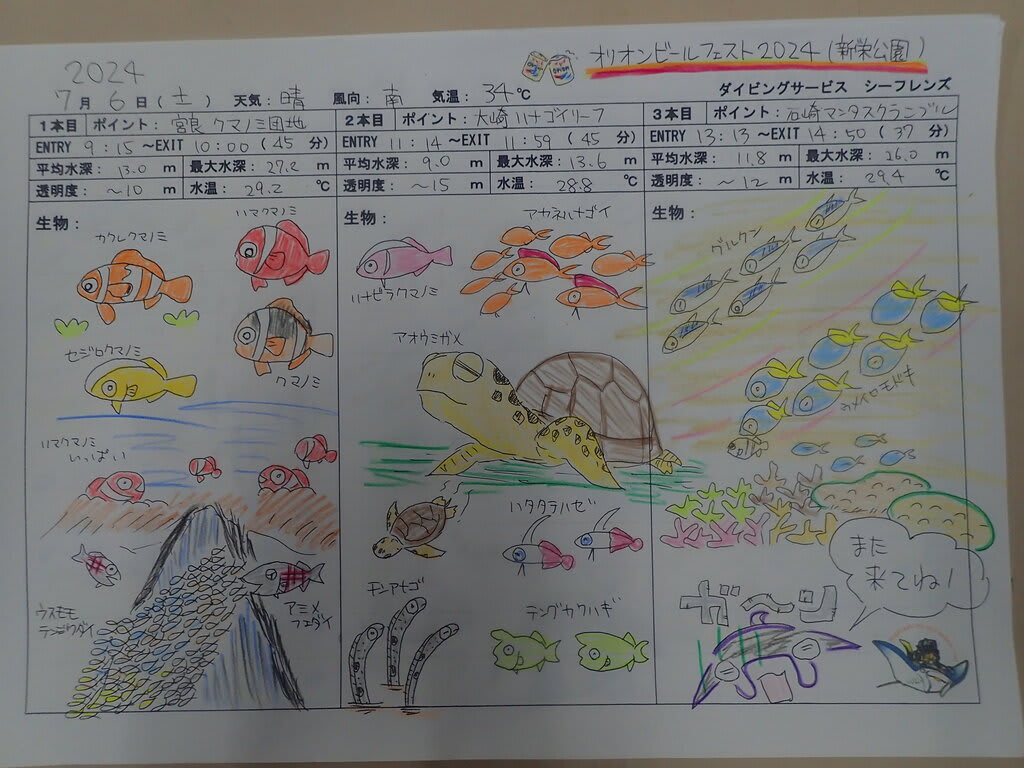 オリオンビールフェスト2024(新栄公園)
2024
7月 6日(土) 天気：晴 風向：南 気温：34℃
ダイビングサービス シーフレンズ
1本目 ポイント：宮良 クマノミ団地
ENTRY 9：15～EXIT 10：00(45 分)
平均水深：13.0 m 最大水深：27.2 m
透明度：～10 m 水温：29.2 ℃
生物：
カクレクマノミ
ハマクマノミ
セジロクマノミ
クマノミ
ハマクマノミ
いっぱい
ウスモモ
テンジクダイ
アミメ
フエダイ
2本目 ポイント：大崎 ハナゴイリーフ
ENTRY 11：14～EXIT 11：59(45 分)
平均水深：9.0 m 最大水深：13.6 m
透明度：～15 m 水温：28.8 ℃
生物：
アカネハナゴイ
ハナビラクマノミ
アオウミガメ
ハタタテハゼ
チンアナゴ
テングカワハギ
3本目 ポイント：石崎マンタスクランブル
ENTRY 13：13～EXIT 14：50(37 分)
平均水深：11.8 m 最大水深：16.0 m
透明度：～12 m 水温：29.4 ℃
生物：
グルクン
ウメイロモドキ
また
来てね!